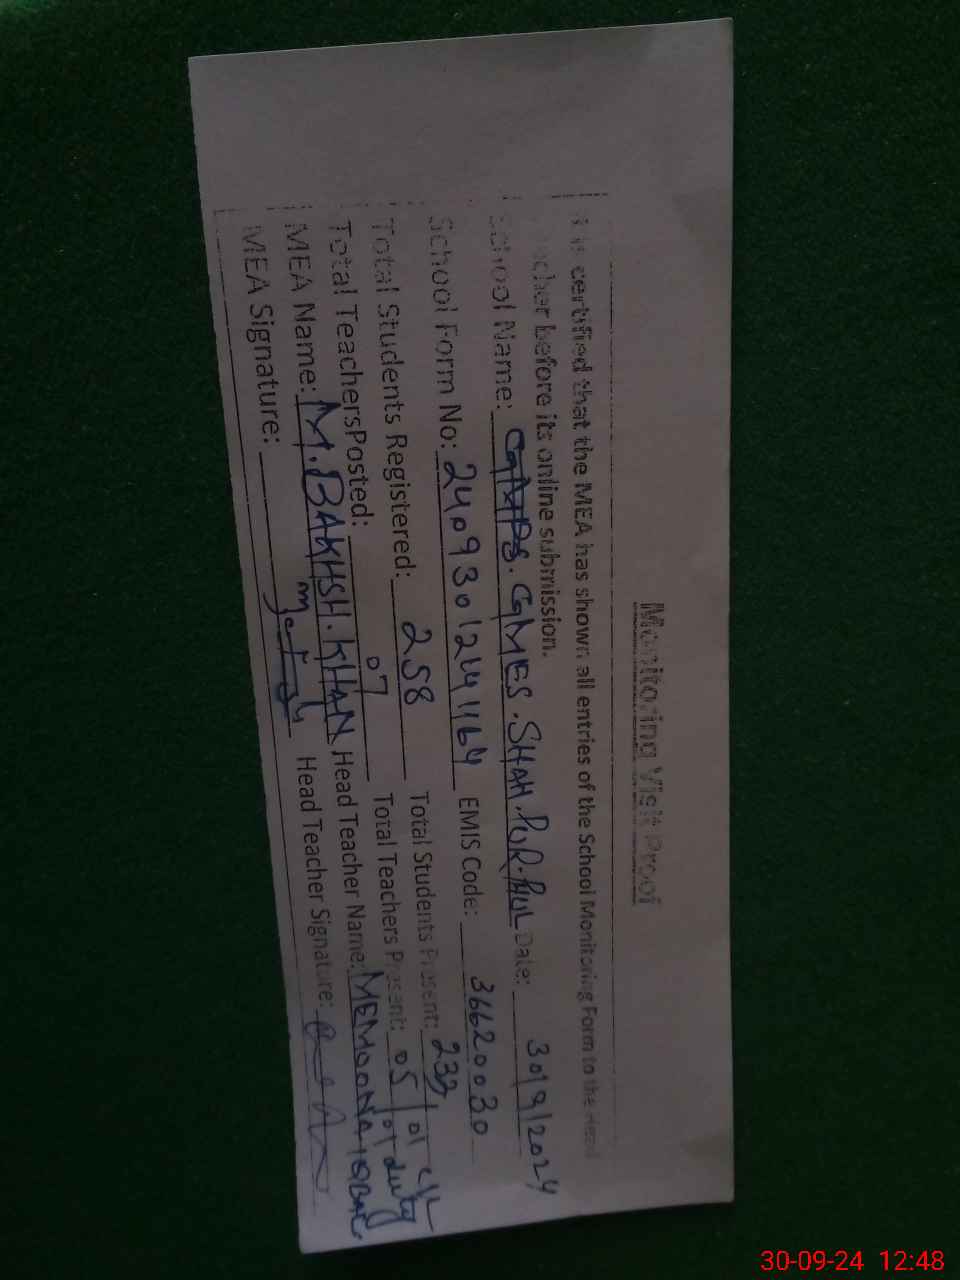 Monitoring Visit Proof
It is certified that the MEA has shown all entries of the School Monitoring Form to the Head
Teacher before its online submission.
School Name: GMES. SHAH. PUR. PHUL Date: 30/9/2024
School Form No: 2409301244164 EMIS Code: 36620030
Total Students Registered: 258 Total Students Present: 233
Total TeachersPosted: 07 Total Teachers Present: 05/01 C/L /01 duty
MEA Name: M. BAKHSH. KHAN Head Teacher Name: MEMOONA IQBAL
MEA Signature: Head Teacher Signature:
30-09-24 12:48